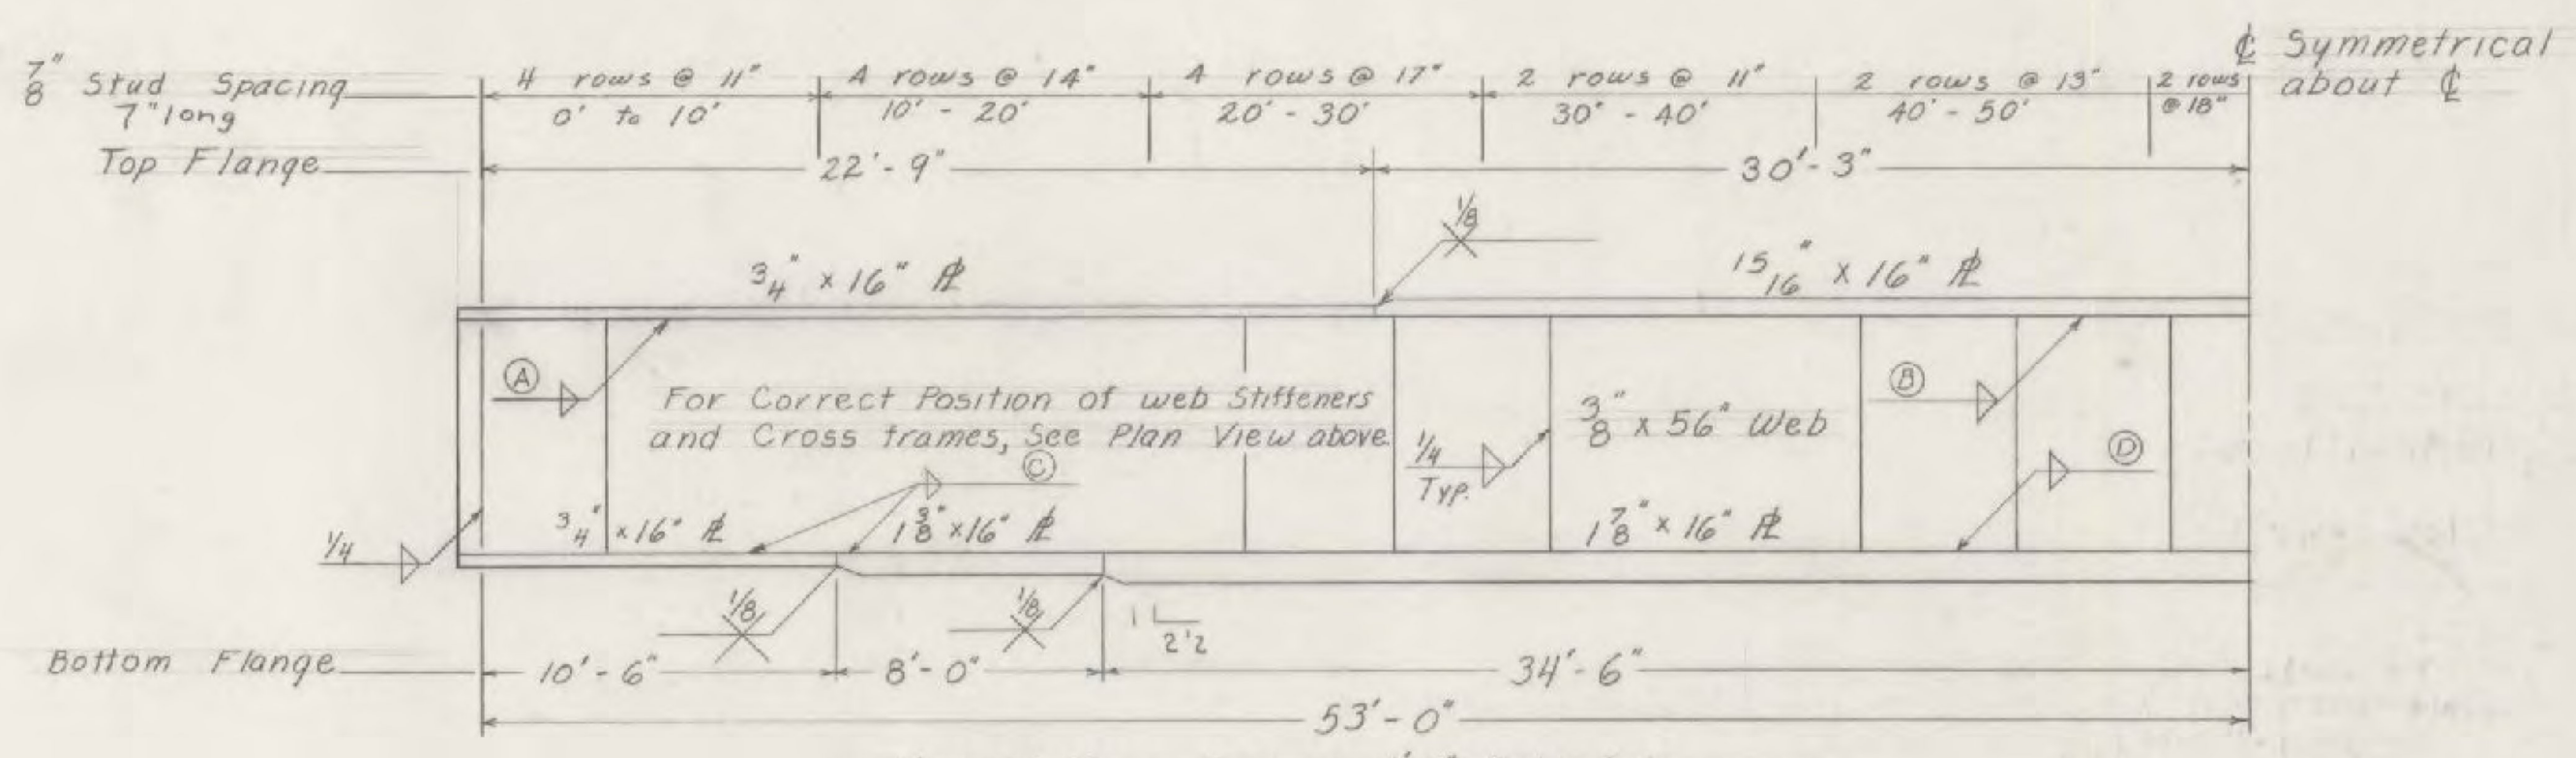 7/8" Stud Spacing
7" long
4 rows @ 11"
0' to 10'
4 rows @ 14"
10' - 20'
4 rows @ 17"
20' - 30'
2 rows @ 11"
30' - 40'
2 rows @ 13"
40' - 50'
2 rows
@ 18"
℄ Symmetrical
about ℄
Top Flange
22'-9"
30'-3"
1/8
3/4" x 16" ℙL
15/16" x 16" ℙL
A
For Correct Position of web Stiffeners
and Cross frames, See Plan View above.
C
1/4
Typ.
3/8" x 56" Web
B
D
1/4
3/4" x 16" ℙL
1 3/8" x 16" ℙL
1 7/8" x 16" ℙL
1/8
1/8
1
2 1/2
Bottom Flange
10'-6"
8'-0"
34'-6"
53'-0"